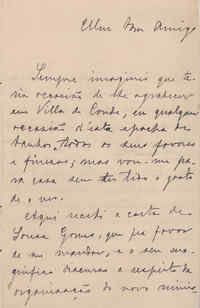 Meu Bom Amigo
Sempre imaginei que te-
ria occasião de lhe agradecer
em Villa do Conde, em qualquer
occasião d'esta epocha de
banhos, todos os seus favores
e finezas; mas vou-me pa-
ra casa sem ter tido o gosto
de o ver.
Aqui recebi a carta de
Sousa Gomes, que fez favor
de me mandar, e o seu ma-
gnifico discurso a respeito da
organisação do novo minis-